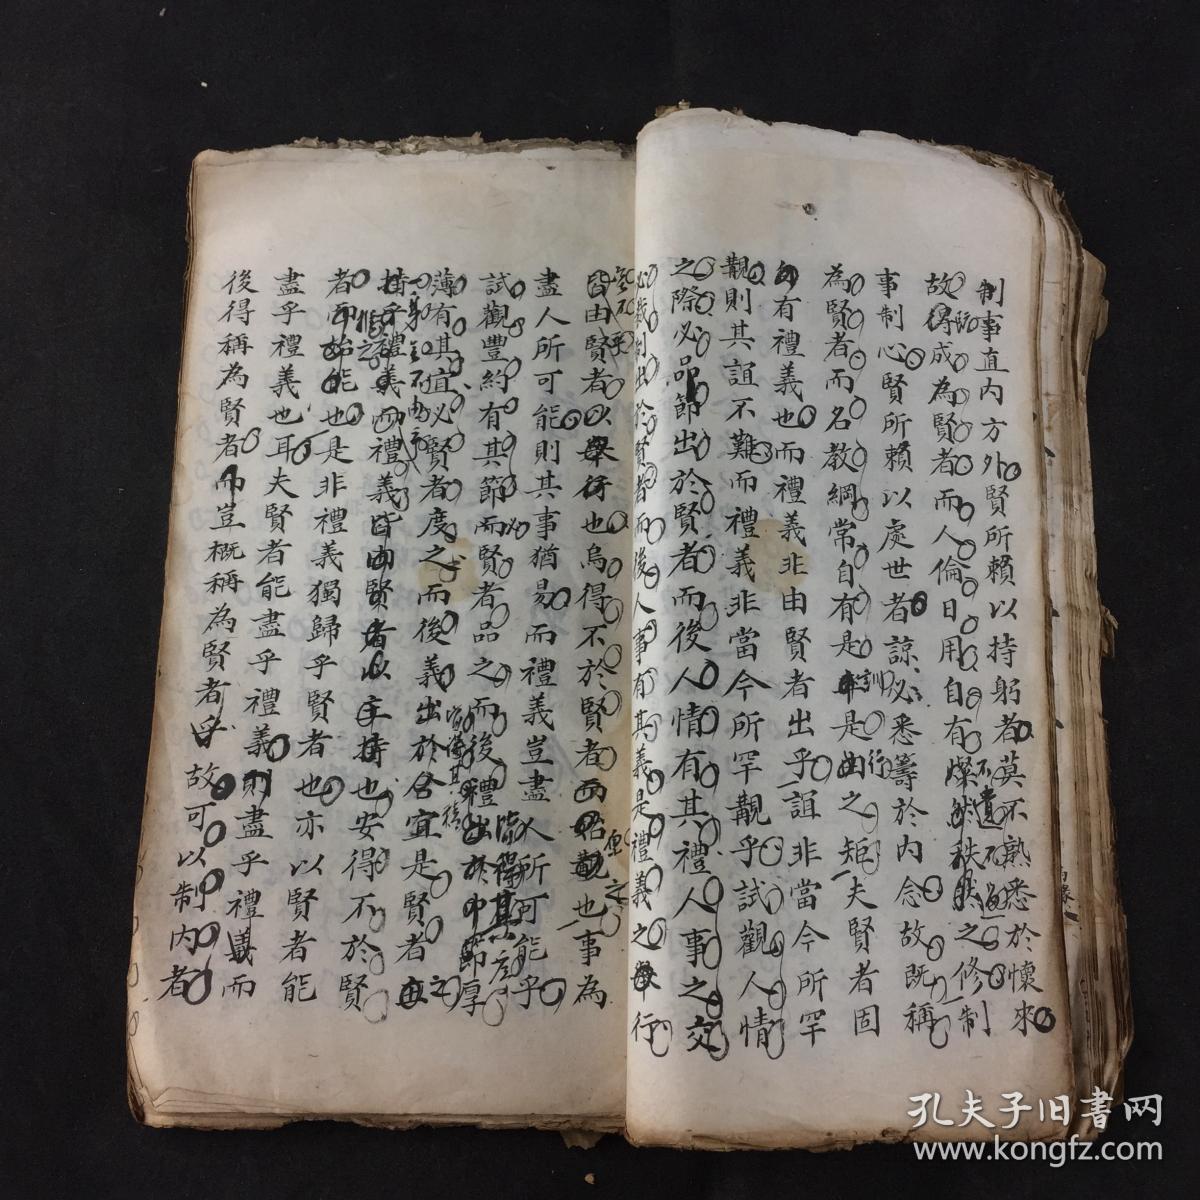 制事直内方外賢所賴以持躬者莫不熟悉於懷來
故得成為賢者而人倫日用自有燦然秩然之修制
事制心賢所賴以處世者諒必悉籌於内念故既稱
為賢者而名教綱常自有是訓是行之矩夫賢者固
有禮義也而禮義非由賢者出乎誼非當今所罕
覯則其誼不難而禮義非當今所罕覯乎試觀人情
之際必品節出於賢者而後人情有其禮人事之交
必裁制出於賢者而後人事有其義是禮義之舉行
皆由賢者以舉行也烏得不於賢者而始觀也事為
盡人所可能則其事猶易而禮義豈盡人所可能乎
試觀豐約有其節而必賢者品之而後禮出於中節厚
薄有其宜必賢者度之而後義出於合宜是賢者
持乎禮義而禮義皆由賢者以主持也安得不於賢
者而始能也是非禮義獨歸乎賢者也亦以賢者能
盡乎禮義也耳夫賢者能盡乎禮義則盡乎禮義而
後得稱為賢者而豈概稱為賢者乎故可以制内者
孔夫子旧書网
www.kongfz.com